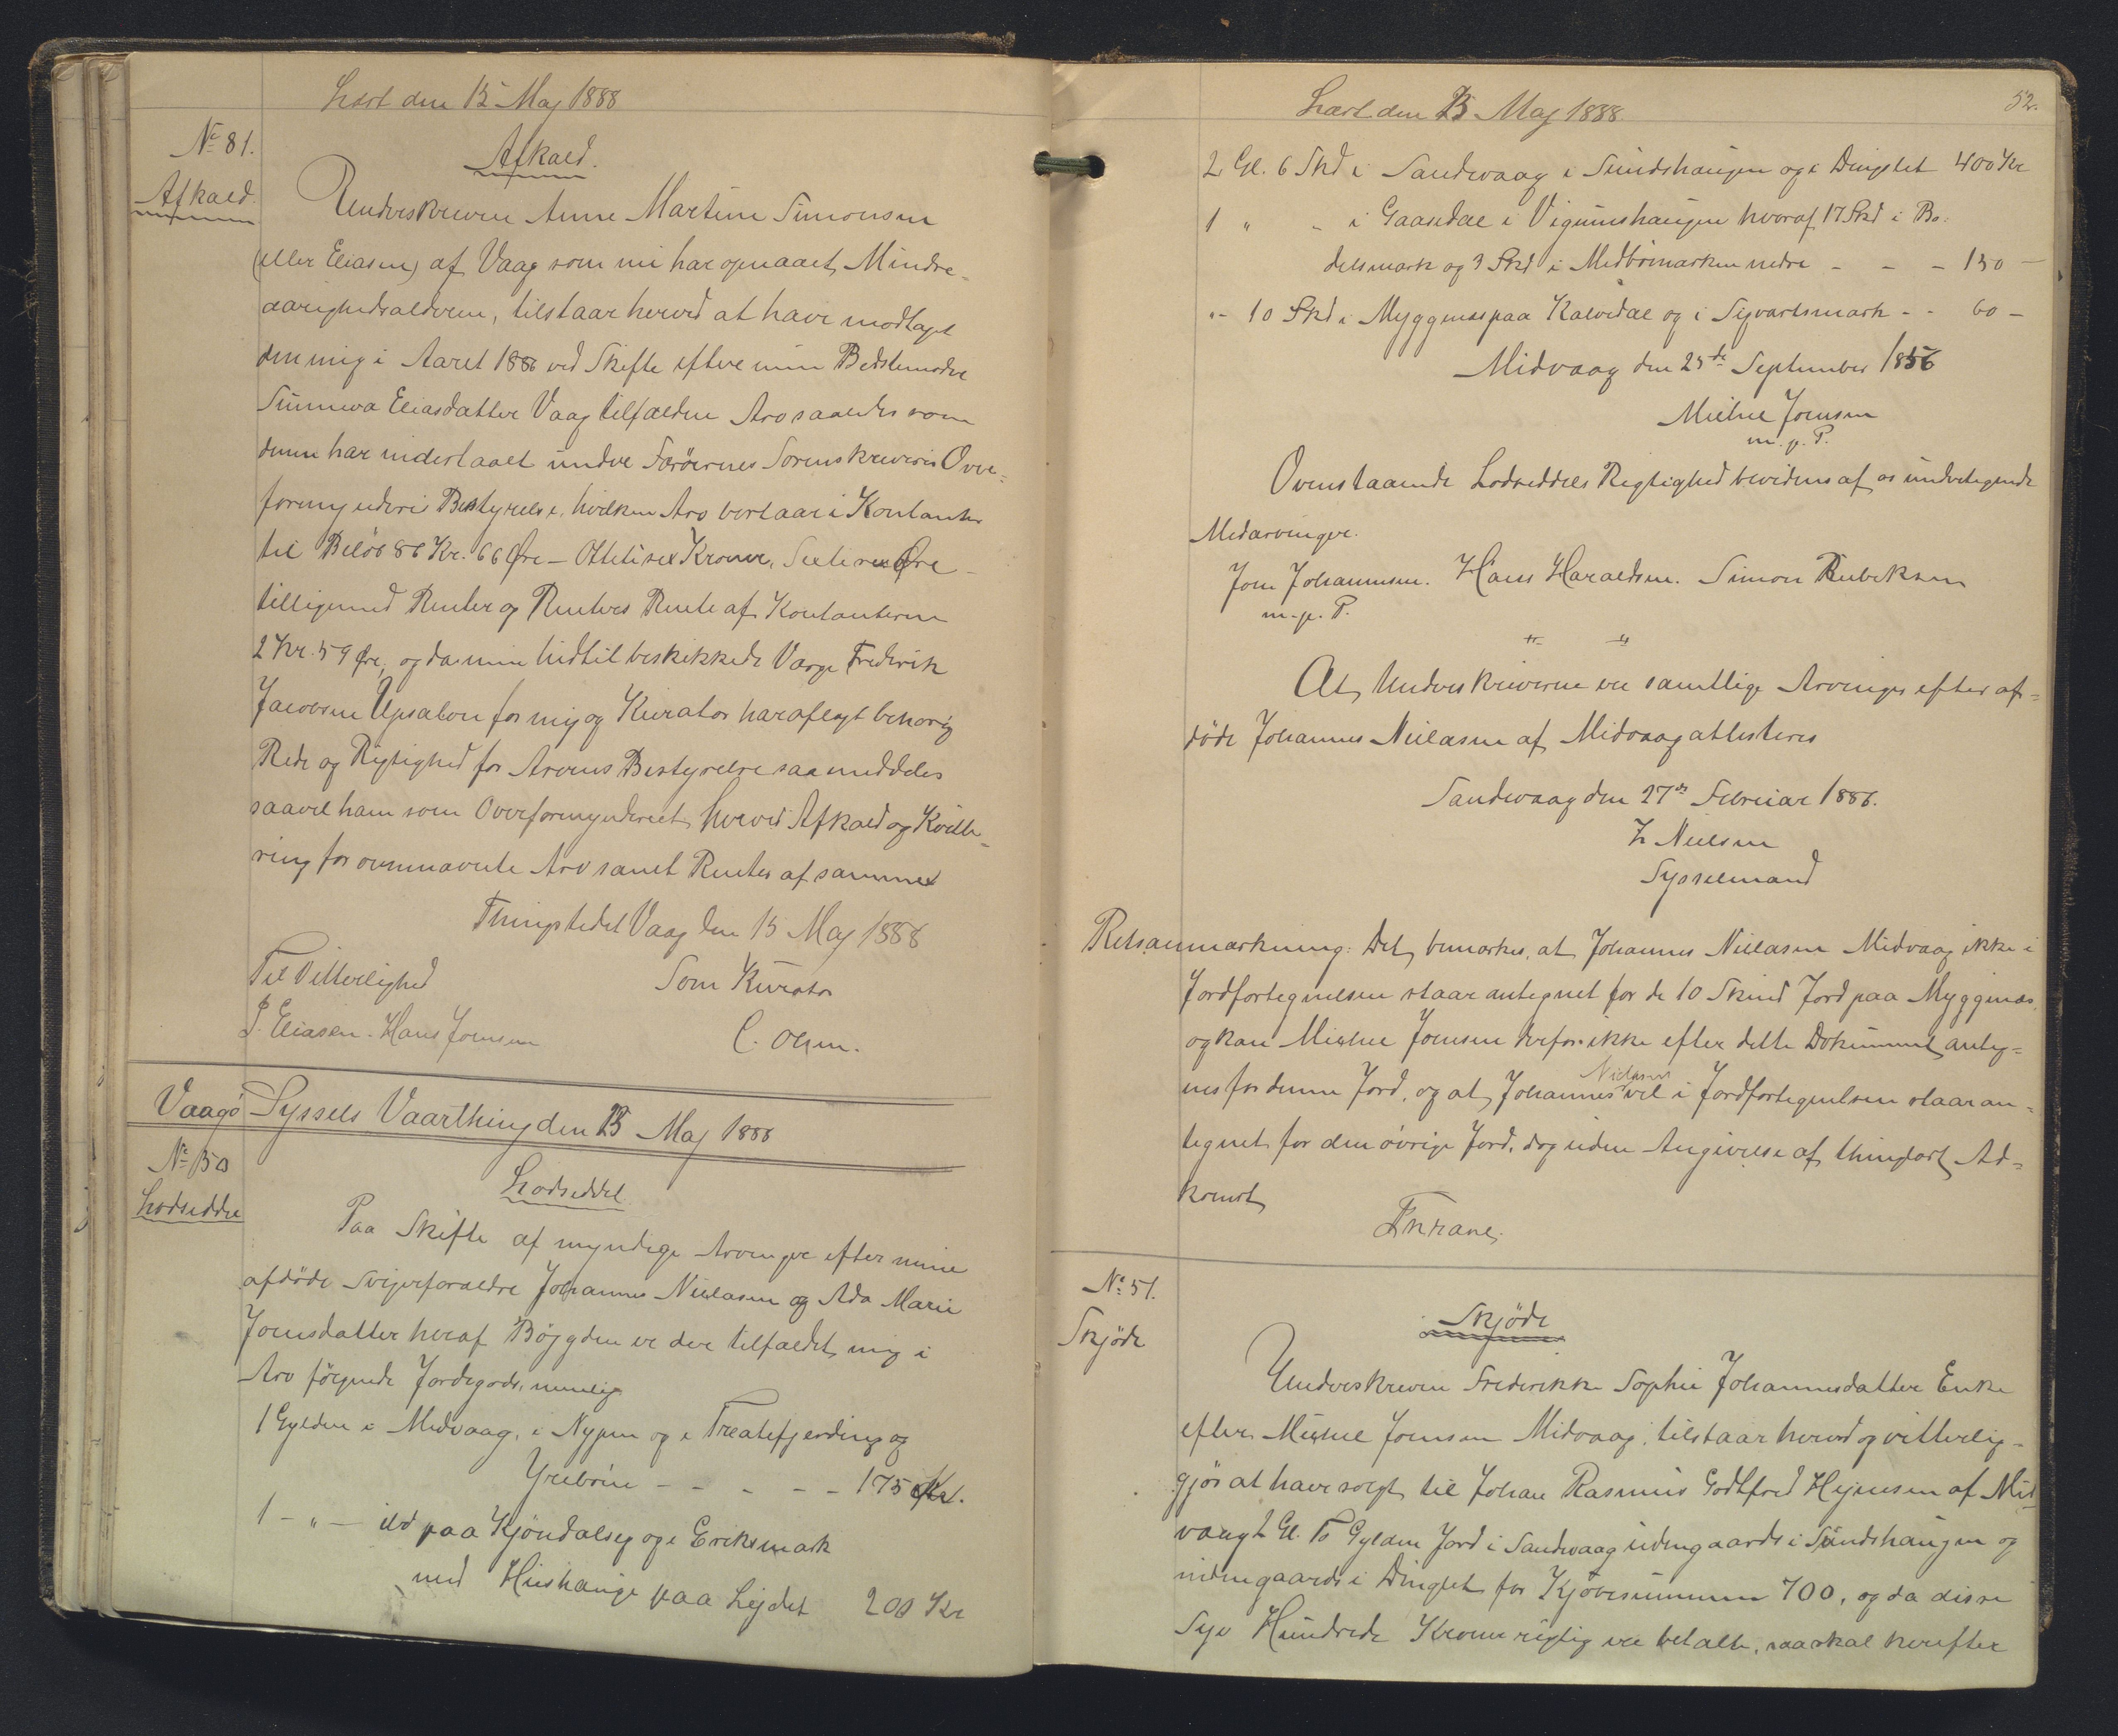 Læst den 15 Maj 1888
No 81.
Afkald.
Afkald.
Underskreven Anne Martine Simonsen
(eller Eliasen) af Vaag som nu har opnaaet Mindre-
aarighedsalderen, tilstaar herved at have modtaget
den mig i Aaret 1886 ved Skifte efter min Bedstemoder
Sunneva Eliasdatter Vaag tilfaldne Arv saaledes som
denne har indestaaet under Færøernes Sorenskriveris Over-
formynderis Bestyrelse, hvilken Arv bestaar i Kontanter
til Beløb 86 Kr. 66 Øre - Ottetisex Kroner, Sextisex Øre -
tilligemed Renter og Renters Rente af Kontanterne
2 Kr. 59 Øre, og da min hidtil beskikkede Værge Frederik
Jacobsen Upsalon for mig og Kurator har aflagt behørig
Rede og Rigtighed for Arvens Bestyrelse saa meddeles
saavel ham som Overformynderiet herved Afkald og Kvitte-
ring for ovennævnte Arv samt Renter af samme
Thingstedet Vaag den 15 Maj 1888
Til Vitterlighed
Som Kurator
P. Eliasen. Hans Joensen
C. Olsen.
Vaagø Syssels Vaarthing den 23 Maj 1888
No 50
Lodseddel
Lodseddel
Paa Skifte af myndige Arvinger efter mine
afdøde Svigerforældre Johannes Nielasen og Ada Marie
Joensdatter heraf Bøjgden er der tilfaldet mig i
Arv følgende Jordegods, nemlig
1 Gylden i Midvaag, i Nypen og i Treatefjerding og
Yrebøni - - - - - 175 Kr.
1 - " - ibd paa Kjøndalseg og i Eriksmark
med Huushauge paa Lejdet 200 Kr
52.
Læst den 23 Maj 1888.
2 Gl. 6 Skd i Sandevaag i Sundshaugen og i Dingletet 400 Kr
1 " " i Gaasedal i Vigumshaugen hvoraf 17 Skd i Bø-
delsmark og 3 Skd i Midbømarken nedre - - - 150 -
"- 10 Skd i Myggenæs paa Kalvedal og i Sejvartsmark - - 60 -
Midvaag den 25de September 1856
Michel Joensen
m. p. P.
Ovenstaaende Lodseddels Rigtighed bevidnes af os undertegnede
Medarvinger.
Joen Johannesen. Hans Haraldsen. Simon Rubeksen
m. p. P.
" "
At Underskriverne ere samtlige Arvinger efter af-
døde Johannes Nielasen af Midvaag attesteres
Sandevaag den 27de Februar 1886.
Z Nielsen
Sysselmand
Retsanmærkning: Det bemærkes, at Johannes Nielasen Midvaag ikke i
Jordfortegnelsen staar antegnet for de 10 Skind Jord paa Myggenæs
og kan Michel Joensen derfor ikke efter dette Dokument anteg-
nes for denne Jord, og at Johannes Nielasen vel i Jordfortegnelsen staar an-
tegnet for den øvrige Jord, dog uden Angivelse af thinglæst Ad-
komst
No 51.
Skjøde
Skjøde
Underskreven Frederikke Sophie Johannesdatter Enke
efter Michel Joensen Midvaag, tilstaar herved og vitterlig-
gjør at have solgt til Johan Rasmus Godtfred Hejnesen af Mid
vaag 2 Gl. To Gylden Jord i Sandevaag udengaards i Sundshaugen og
indengaards i Dinglet for Kjøbesummen 700, og da disse
Syv Hundrede Kroner rigtig ere betalte, saa skal herefter